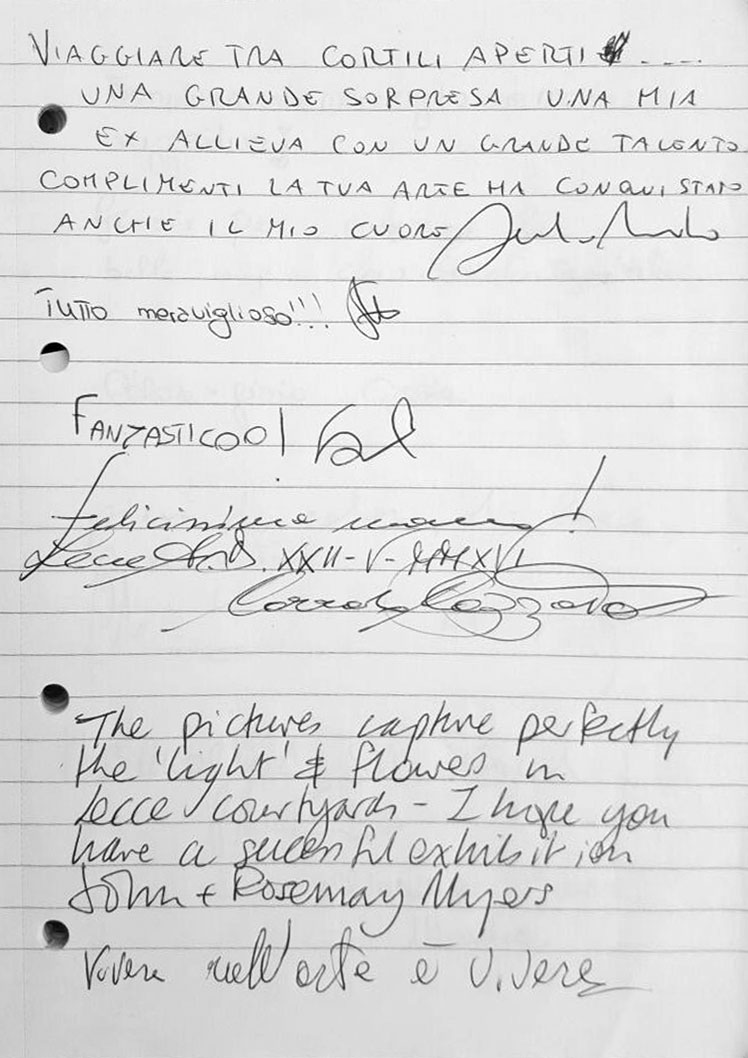 VIAGGIARE TRA CORTILI APERTI ....
UNA GRANDE SORPRESA UNA MIA
EX ALLIEVA CON UN GRANDE TALENTO
COMPLIMENTI LA TUA ARTE HA CONQUISTATO
ANCHE IL MIO CUORE
Tutto meraviglioso!!!
FANTASTICOO!
Felicissima mano!
Lecce A.D. XXII-V-MMXVI
Corrado
The pictures capture perfectly
the 'light' & flowers in
Lecce courtyards - I hope you
have a sucessful exhibition
John + Rosemay Myers
Vivere nell'arte è vivere